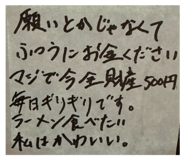 願いとかじゃなくて
ふつうにお金ください
マジで今全財産500円
毎日ギリギリです。
ラーメン食べたい
私はかわいい。